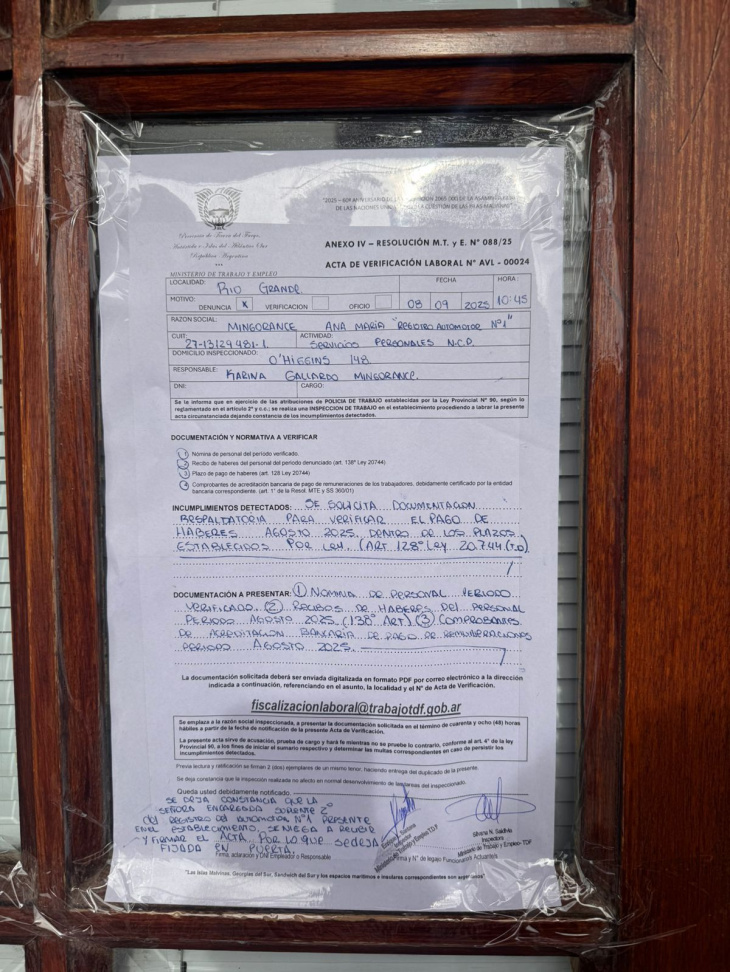 "2025 – 60º ANIVERSARIO DE LA RESOLUCIÓN 2065 (XX) DE LA ASAMBLEA
DE LAS NACIONES UNIDAS LA CUESTIÓN DE LAS ISLAS MALVINAS"
Provincia de Tierra del Fuego,
Antártida e Islas del Atlántico Sur
República Argentina
***
MINISTERIO DE TRABAJO Y EMPLEO
ANEXO IV – RESOLUCIÓN M.T. y E. Nº 088/25
ACTA DE VERIFICACIÓN LABORAL Nº AVL - 00024
LOCALIDAD: RIO GRANDE
FECHA
HORA:
MOTIVO:
DENUNCIA X VERIFICACION OFICIO 08 09 2025 10:45
RAZON SOCIAL: MINGORANCE ANA MARIA "REGISTRO AUTOMOTOR Nº1"
CUIT: 27-13129481-1. ACTIVIDAD: SERVICIOS PERSONALES N.C.P.
DOMICILIO INSPECCIONADO: O'HIGGINS 148
RESPONSABLE: KARINA GALLARDO MINGORANCE.
DNI: CARGO:
Se la informa que en ejercicio de las atribuciones de POLICIA DE TRABAJO establecidas por la Ley Provincial Nº 90, según lo
reglamentado en el artículo 2º y c.c.; se realiza una INSPECCION DE TRABAJO en el establecimiento procediendo a labrar la presente
acta circunstanciada dejando constancia de los incumplimientos detectados.
DOCUMENTACIÓN Y NORMATIVA A VERIFICAR
1 Nómina de personal del período verificado.
2 Recibo de haberes del personal del período denunciado (art. 138º Ley 20744)
3 Plazo de pago de haberes (art. 128 Ley 20744)
4 Comprobantes de acreditación bancaria de pago de remuneraciones de los trabajadores, debidamente certificado por la entidad
bancaria correspondiente. (art. 1º de la Resol. MTE y SS 360/01)
INCUMPLIMIENTOS DETECTADOS: SE SOLICITA DOCUMENTACION
RESPALDATORIA PARA VERIFICAR EL PAGO DE
HABERES AGOSTO 2025. DENTRO DE LOS PLAZOS
ESTABLECIDOS POR LEY. (ART 128º LEY 20.744 (T.O)
DOCUMENTACIÓN A PRESENTAR: 1 NOMINA DE PERSONAL PERIODO
VERIFICADO. 2 RECIBOS DE HABERES DEL PERSONAL
PERIODO AGOSTO 2025. (138º ART) 3 COMPROBANTES
DE ACREDITACION BANCARIA DE PAGO DE REMUNERACIONES
PERIODO AGOSTO 2025.
La documentación solicitada deberá ser enviada digitalizada en formato PDF por correo electrónico a la dirección
indicada a continuación, referenciando en el asunto, la localidad y el Nº de Acta de Verificación.
fiscalizacionlaboral@trabajotdf.gob.ar
Se emplaza a la razón social inspeccionada, a presentar la documentación solicitada en el término de cuarenta y ocho (48) horas
hábiles a partir de la fecha de notificación de la presente Acta de Verificación.
La presente acta sirve de acusación, prueba de cargo y hará fe mientras no se pruebe lo contrario, conforme al art. 4º de la ley
Provincial 90, a los fines de iniciar el sumario respectivo y determinar las multas correspondientes en caso de persistir los
incumplimientos detectados.
Previa lectura y ratificación se firman 2 (dos) ejemplares de un mismo tenor, haciendo entrega del duplicado de la presente.
Se deja constancia que la inspección realizada no afecto en normal desenvolvimiento de las tareas del inspeccionado.
Queda usted debidamente notificado.
SE DEJA CONSTANCIA QUE LA
SEÑORA ENCARGADA SUPLENTE 2º
DEL REGISTRO DEL AUTOMOTOR Nº1 PRESENTE
EN EL ESTABLECIMIENTO, SE NIEGA A RECIBIR
Y FIRMAR EL ACTA. POR LO QUE SE DEJA
FIJADA EN PUERTA.
Silvana N. Saldivia
Inspectora
Ministerio de Trabajo y Empleo- TDF
Firma, aclaración y DNI Empleador o Responsable
Firma y Nº de legajo Funcionario/s Actuante/s
"Las Islas Malvinas, Georgias del Sur, Sandwich del Sur y los espacios marítimos e insulares correspondientes son argentinos"